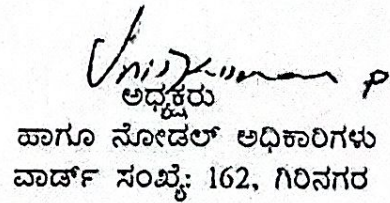 ಅಧ್ಯಕ್ಷರು
ಹಾಗೂ ನೋಡಲ್ ಅಧಿಕಾರಿಗಳು
ವಾರ್ಡ್ ಸಂಖ್ಯೆ: 162, ಗಿರಿನಗರ